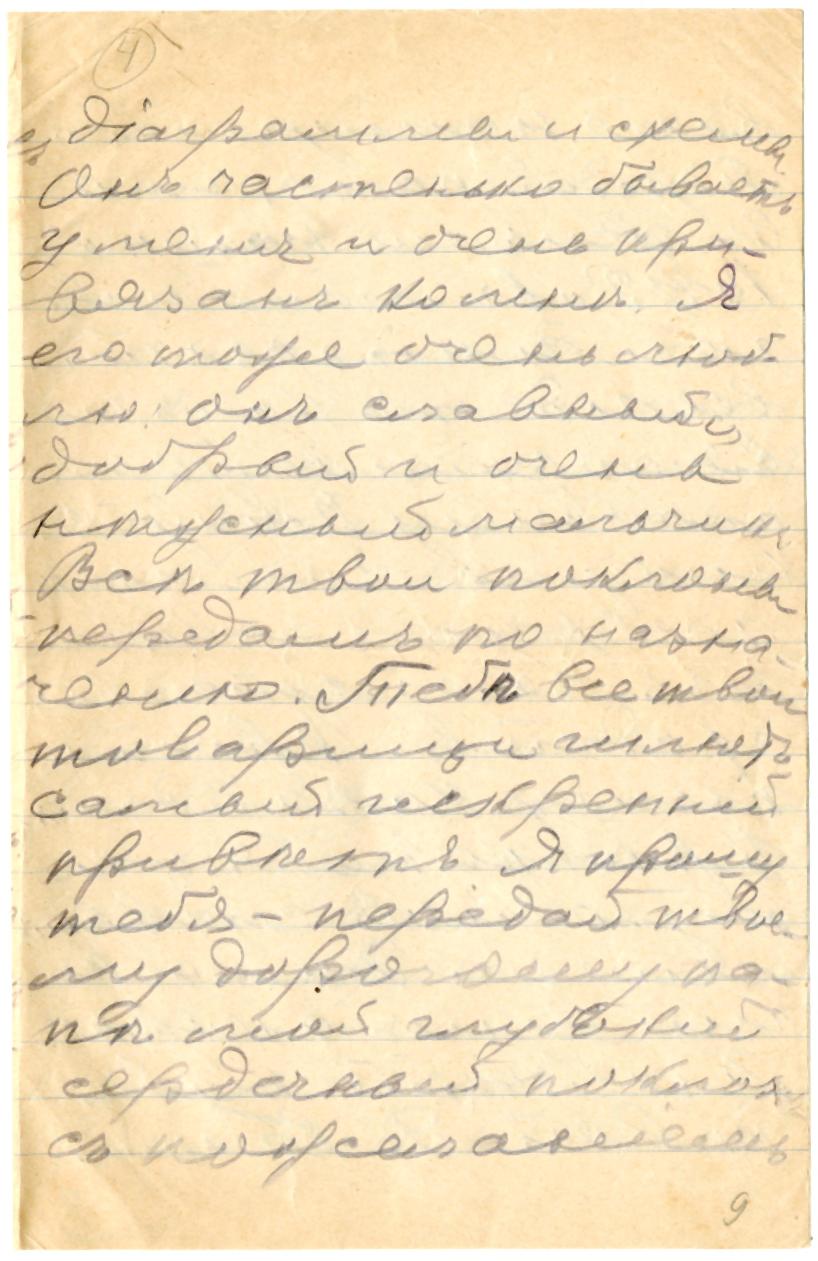 4
діаграммы и схемы.
Онъ частенько бываетъ
у меня и очень при-
вязанъ ко мнѣ. Я
его тоже очень люб-
лю: онъ славный,
добрый и очень
нѣжный мальчикъ
Всѣ твои поклоны
передамъ по назна-
ченію. Тебѣ все твои
товарищи шлютъ
самый искренній
привѣтъ Я прошу
тебя – передай твое-
му дорогому па-
пѣ мой глубокий
сердечный поклонъ
съ пожеланіемъ
9